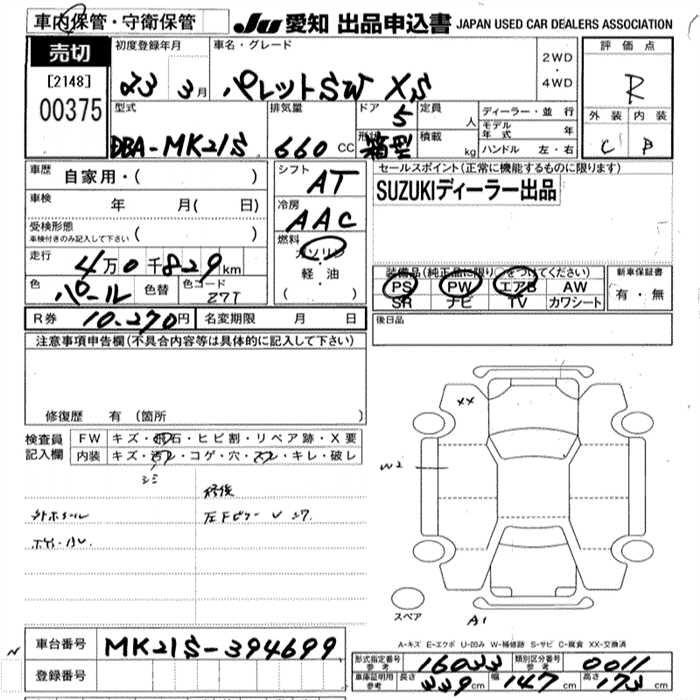 車内保管・守衛保管
JU 愛知 出品申込書 JAPAN USED CAR DEALERS ASSOCIATION
売切
[2148]
00375
初度登録年月 23 3月
車名・グレード パレットSW XS
2WD・4WD
評価点 R
外装 C 内装 B
型式 DBA-MK21S
排気量 660cc
ドア 5
形状 箱型
定員 人
積載 kg
ディーラー・並行
モデル年式 年
ハンドル 左・右
車歴 自家用・( )
車検 年 月( 日)
受検形態 車検付きのみ記入して下さい ( )
走行 4万0千829km
色 パール 色替 色コード Z7T
シフト AT
冷房 AAC
燃料 ガソリン・軽油 ( )
セールスポイント(正常に機能するものに限ります)
SUZUKIディーラー出品
装備品(純正品に限り○をつけてください)
PS PW エアB AW
SR ナビ TV カワシート
新車保証書 有・無
R券 10,270円 名変期限 月 日
後日品
注意事項申告欄(不具合内容等は具体的に記入して下さい)
修復歴 有 (箇所 )
検査員記入欄
FW キズ・飛石・ヒビ割・リペア跡・X要
内装 キズ・汚レ・コゲ・穴・スレ・キレ・破レ
シミ
修後
XX
W2
A1
スペア
A-キズ E-エクボ U-凹み W-補修跡 S-サビ C-腐食 XX-交換済
車台番号 MK21S-394699
登録番号
形式指定番号 参考 16033 類別区分番号 参考 0011
車庫証明用 参考 長さ 339cm 幅 147cm 高さ 173cm